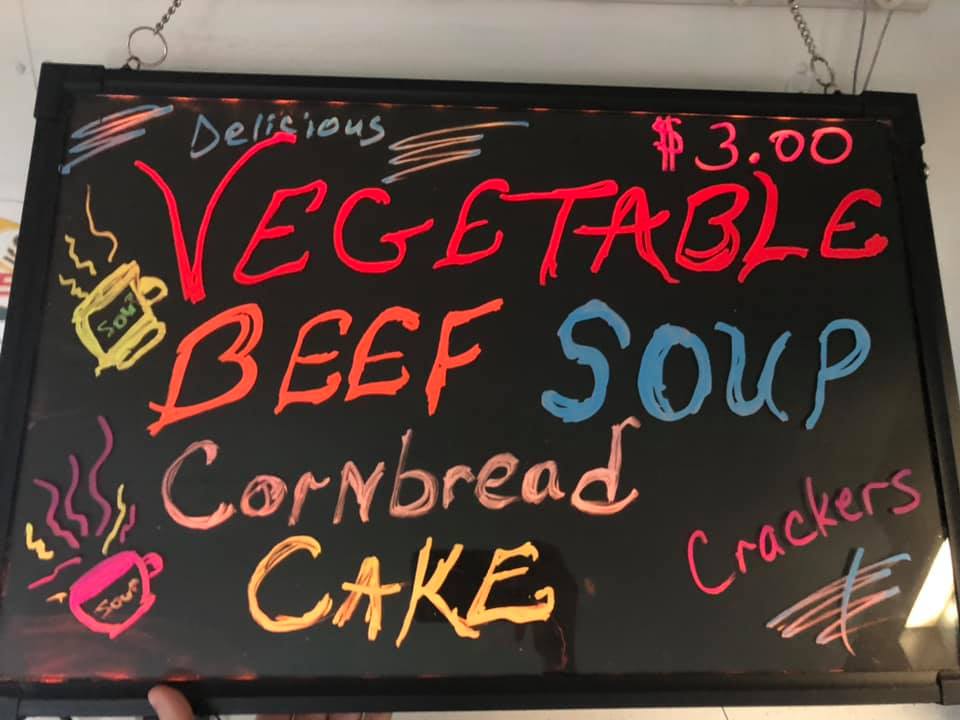 Delicious
$3.00
VEGETABLE
BEEF SOUP
SOUP
CornbreaD
Crackers
CAKE
SOUP